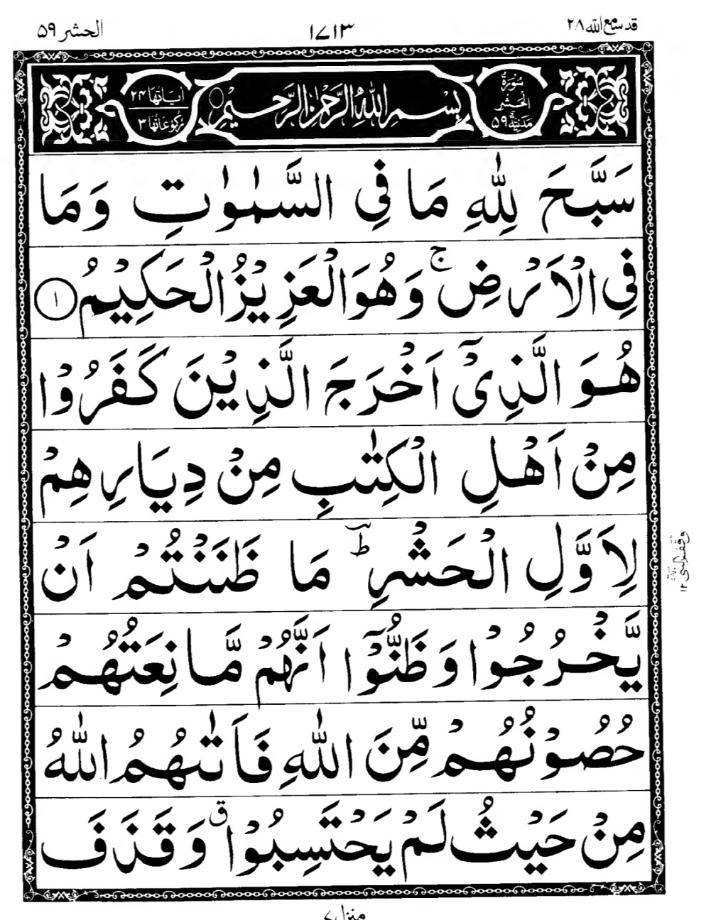 قد سمع الله ۲۸
۱۷۱۳
الحشر ۵۹
سُوْرَةُ الْحَشْرِ مَدَنِيَّةٌ ۵۹
بِسْمِ اللّٰهِ الرَّحْمٰنِ الرَّحِيْمِ
اٰيَاتُهَا ۲۴
رُكُوْعَاتُهَا ۳
سَبَّحَ لِلّٰهِ مَا فِي السَّمٰوٰتِ وَمَا
فِي الْاَرْضِ ۚ وَهُوَ الْعَزِيْزُ الْحَكِيْمُ ۱
هُوَ الَّذِيْٓ اَخْرَجَ الَّذِيْنَ كَفَرُوْا
مِنْ اَهْلِ الْكِتٰبِ مِنْ دِيَارِهِمْ
لِاَوَّلِ الْحَشْرِ ؕ مَا ظَنَنْتُمْ اَنْ
يَّخْرُجُوْا وَظَنُّوْٓا اَنَّهُمْ مَّانِعَتُهُمْ
حُصُوْنُهُمْ مِّنَ اللّٰهِ فَاَتٰىهُمُ اللّٰهُ
مِنْ حَيْثُ لَمْ يَحْتَسِبُوْا ق وَقَذَفَ
منزل ۷